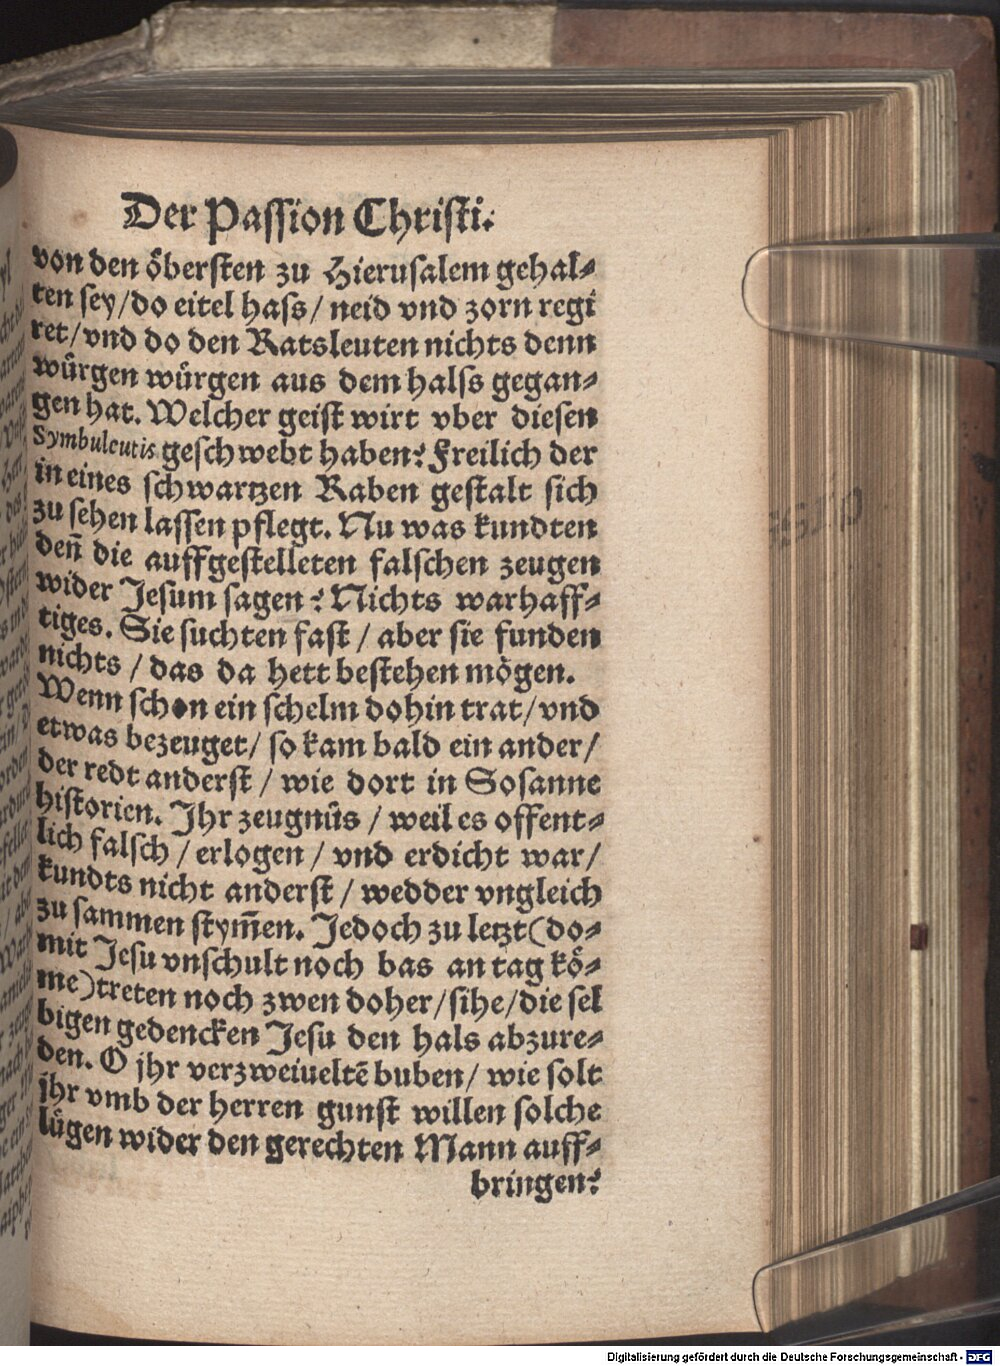 Der Passion Christi.
von den öbersten zu Hierusalem gehal-
ten sey/do eitel hass/ neid vnd zorn regi
ret/vnd do den Ratsleuten nichts denn
würgen würgen aus dem halss gegan-
gen hat. Welcher geist wirt vber diesen
Symbuleutis geschwebt haben? Freilich der
in eines schwartzen Raben gestalt sich
zu sehen lassen pflegt. Nu was kundten
deñ die auffgestelleten falschen zeugen
wider Jesum sagen? Nichts warhaff-
tiges. Sie suchten fast / aber sie funden
nichts / das da hett bestehen mögen.
Wenn schon ein schelm dohin trat/vnd
etwas bezeuget/ so kam bald ein ander/
der redt anderst / wie dort in Sosanne
historien. Jhr zeugnüs / weil es offent-
lich falsch / erlogen / vnd erdicht war/
kundts nicht anderst / wedder vngleich
zu sammen stym̃en. Jedoch zu letzt (do-
mit Jesu vnschult noch bas an tag kö-
me) treten noch zwen doher/sihe/die sel
bigen gedencken Jesu den hals abzure-
den. O jhr verzweiueltẽ buben/ wie solt
jhr vmb der herren gunst willen solche
lügen wider den gerechten Mann auff-
bringen?
Digitalisierung gefördert durch die Deutsche Forschungsgemeinschaft - DFG